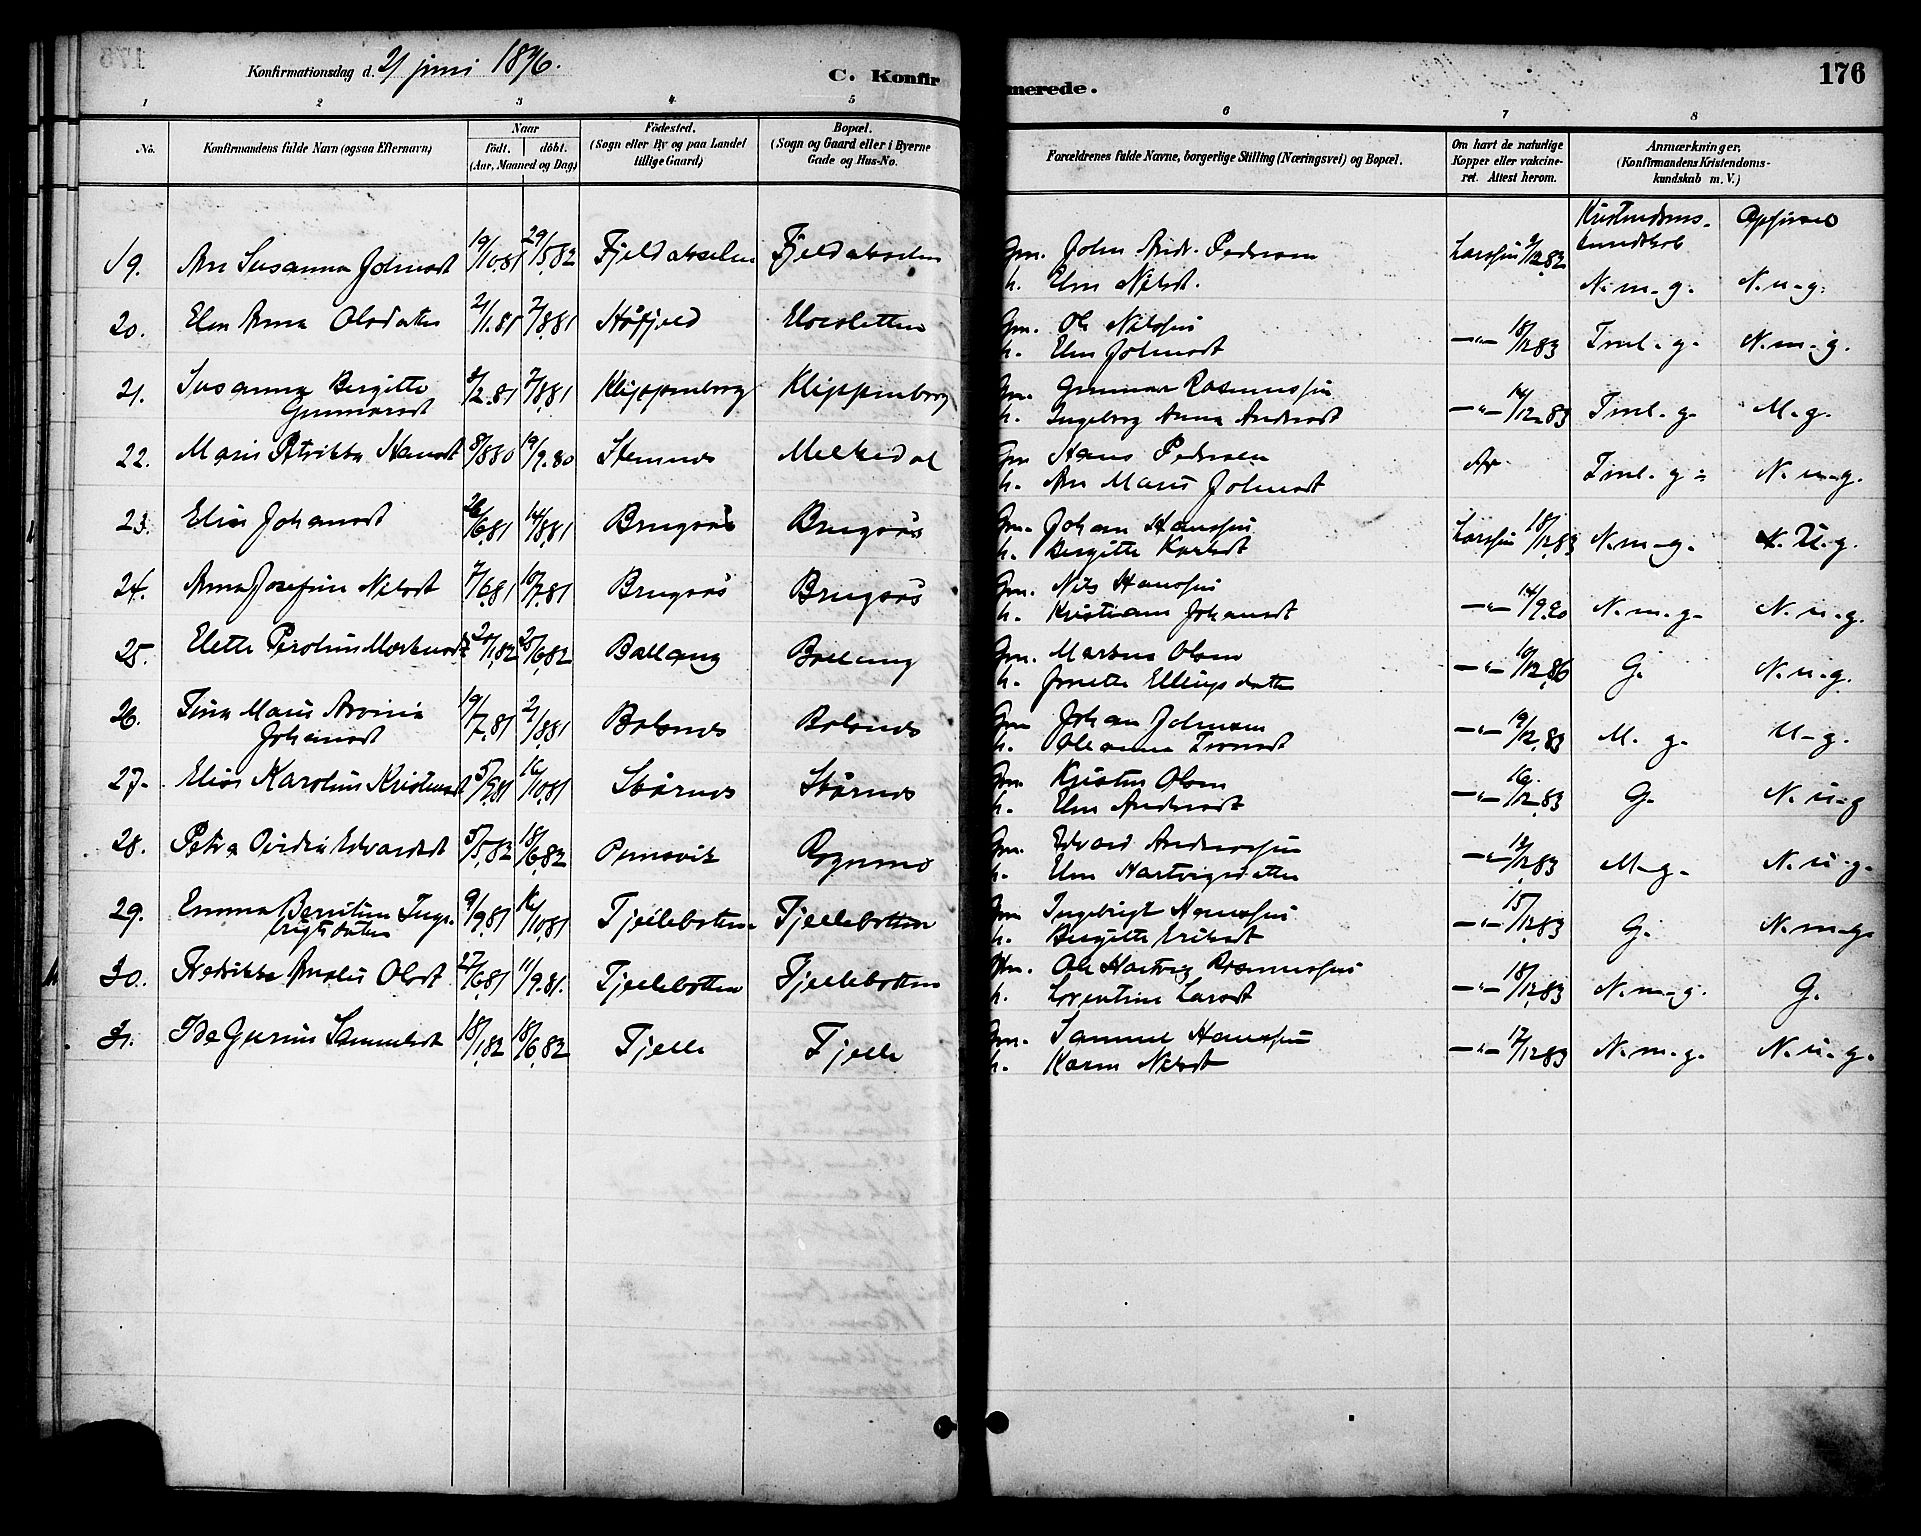 Konfirmationsdag d. 21 juni 1896.
C. Konfirmerede.
176
1 2 3 4 5 6 7 8
No.
Konfirmandens fulde Navn (ogsaa Efternavn)
Naar
födt. döbt.
(Aar, Maaned og Dag)
Födested.
(Sogn eller By og paa Landet
tillige Gaard)
Bopæl.
(Sogn og Gaard eller i Byerne
Gade og Hus-No.
Forældrenes fulde Navne, borgerlige Stilling (Næringsvei) og Bopæl.
Om havt de naturlige
Kopper eller vakcine-
ret. Attest herom.
Anmærkninger,
(Konfirmandens Kristendoms-
kundskab m. V.)
Kristendoms- Opførsel
kundskab
19. Ane Susanna Johnsdt 19/10.81 29/5.82 Fjeldakselen Fjeldakselen Gm. John Andr. Pedersen
h. Elen Nilsdt. N. m. g. N. u. g.
20. Elen Anna Olsdatter 21/1.81 7/8.81 Håfjeld Elvesletten Gm. Ole Nilssen
h. Elen Johnsdt —"— 18/12 83 Tml. g. N. m. g.
21. Susanna Bergitte 7/8.81 Klippenborg Klippenborg Gm. Gunnar Rasmussen
Gunnarsdt h. Ingeborg Anna Andersdt —"— 14/12 83 Tml. g. M. g.
22. Marie Petrikke Hansdt 8/8 80 19/9.80 Stemnes Melkedal Gm Hans Pedersen
h. Ane Marie Johnsdt Ar Tml. g. N. m. g.
23. Elise Johansdt 26/6.81 14/8.81 Brugsås Brugsås Gm. Johan Hanssen
h. Bergitte Karlsdt Larssen 18/12.83 N. m. g. U. g.
24. Anna Josefine Nilsdt 7/6.81 10/7.81 Brugsås Brugsås Gm. Nils Hanssen
h. Kristiane Johansdt —"— 14/9.90 N. m. g. N. u. g.
25. 20/1.82 25/6.82 Ballang Ballang Gm. Markus Olsen
h. Jonette Ellingsdatter —"— 10/12.86 G. N. u. g.
26. Tina Marie Arvinia 19/7.81 21/8.81 Balsnes Balsnes Gm Johan Johnsen
Johansdt h. Oleanna —"— 19/12.83 M. g. U. g.
27. Elise Karoline Kristensdt 5/9.81 16/10.81 Stårnes Stårnes Gm Kristen Olsen
h. Elen Andersdt —"— 16/12.83 G. N. u. g
28. Petra Ovidia Edvardsdt 5/5.82 18/6.82 Punsvik Rognmo Gm. Edvard Anderssen
h. Elen Hartvigsdatter —"— 12/12.83 M. g. N. u. g.
29. Emma Berntine Inge- 9/9.81 16/10.81 Fjellebotten Fjellebotten Gm Ingebrigt Hanssen
brigtsdatter h. Bergitte Eriksdt —"— 15/12.83 G. N. m. g.
30. Fredrikke Amalie Olsdt 27/6.81 11/9.81. Fjellebotten Fjellebotten Gm. Ole Hartvig Rasmussen
h. Lorentine Larsdt —"— 18/12.83 N. m. g. G.
31. Ida Gurine Samuelsdt 18/1.82 18/6.82 Fjelle Fjelle Gm. Samuel Hanssen
h. Karen Nilsdt —"— 17/12.83 N. m. g. N. u. g.